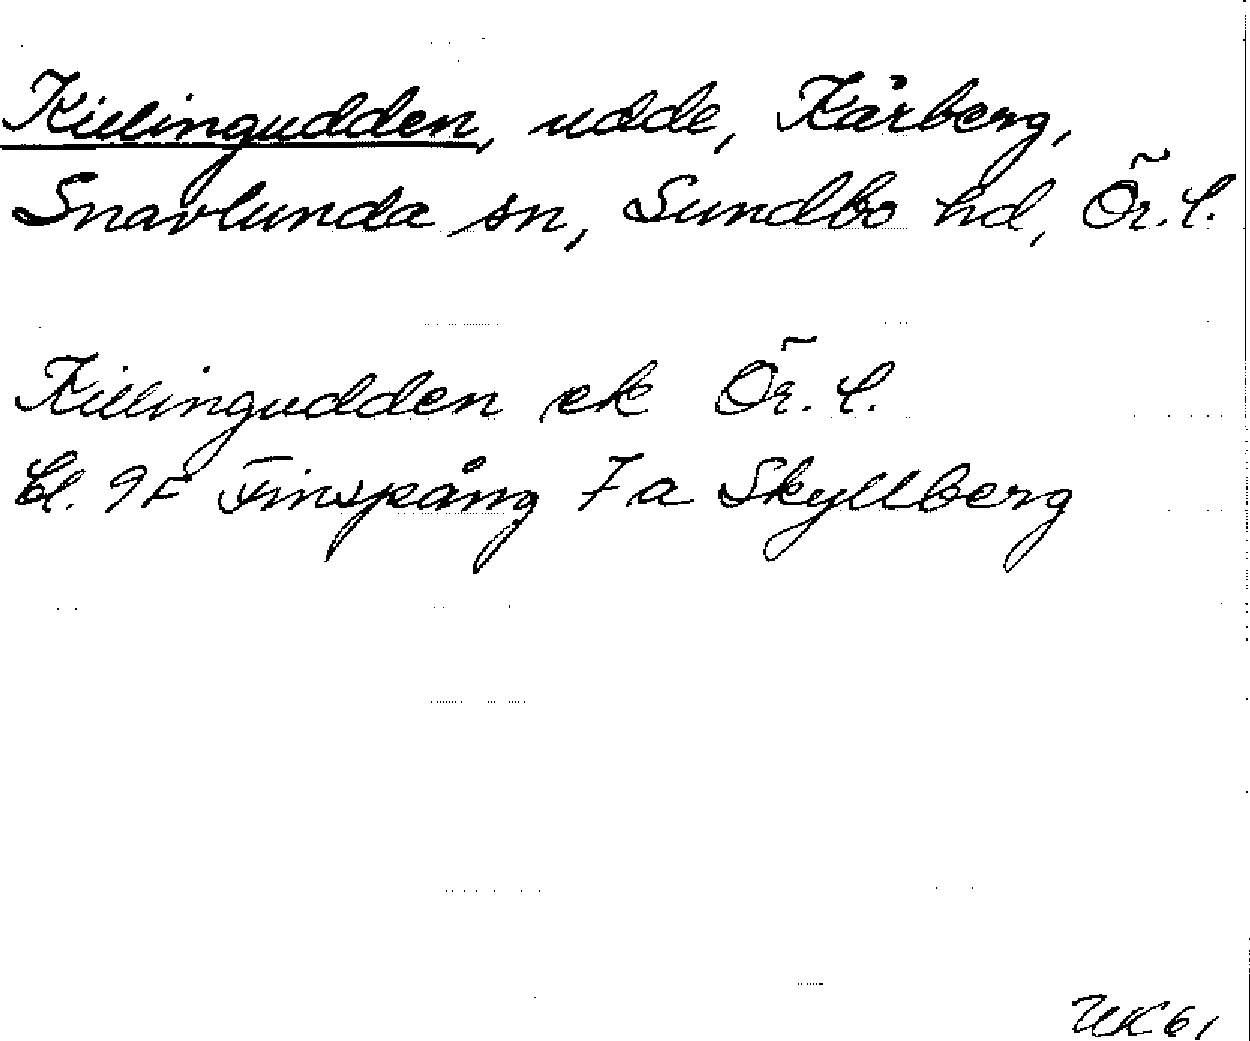 Killingudden, udde, Kårberg,
Snavlunda sn, Sundbo hd, Ör. l.
Killingudden ek Ör. l.
bl. 9F Finspång 7a Skyllberg
UK61